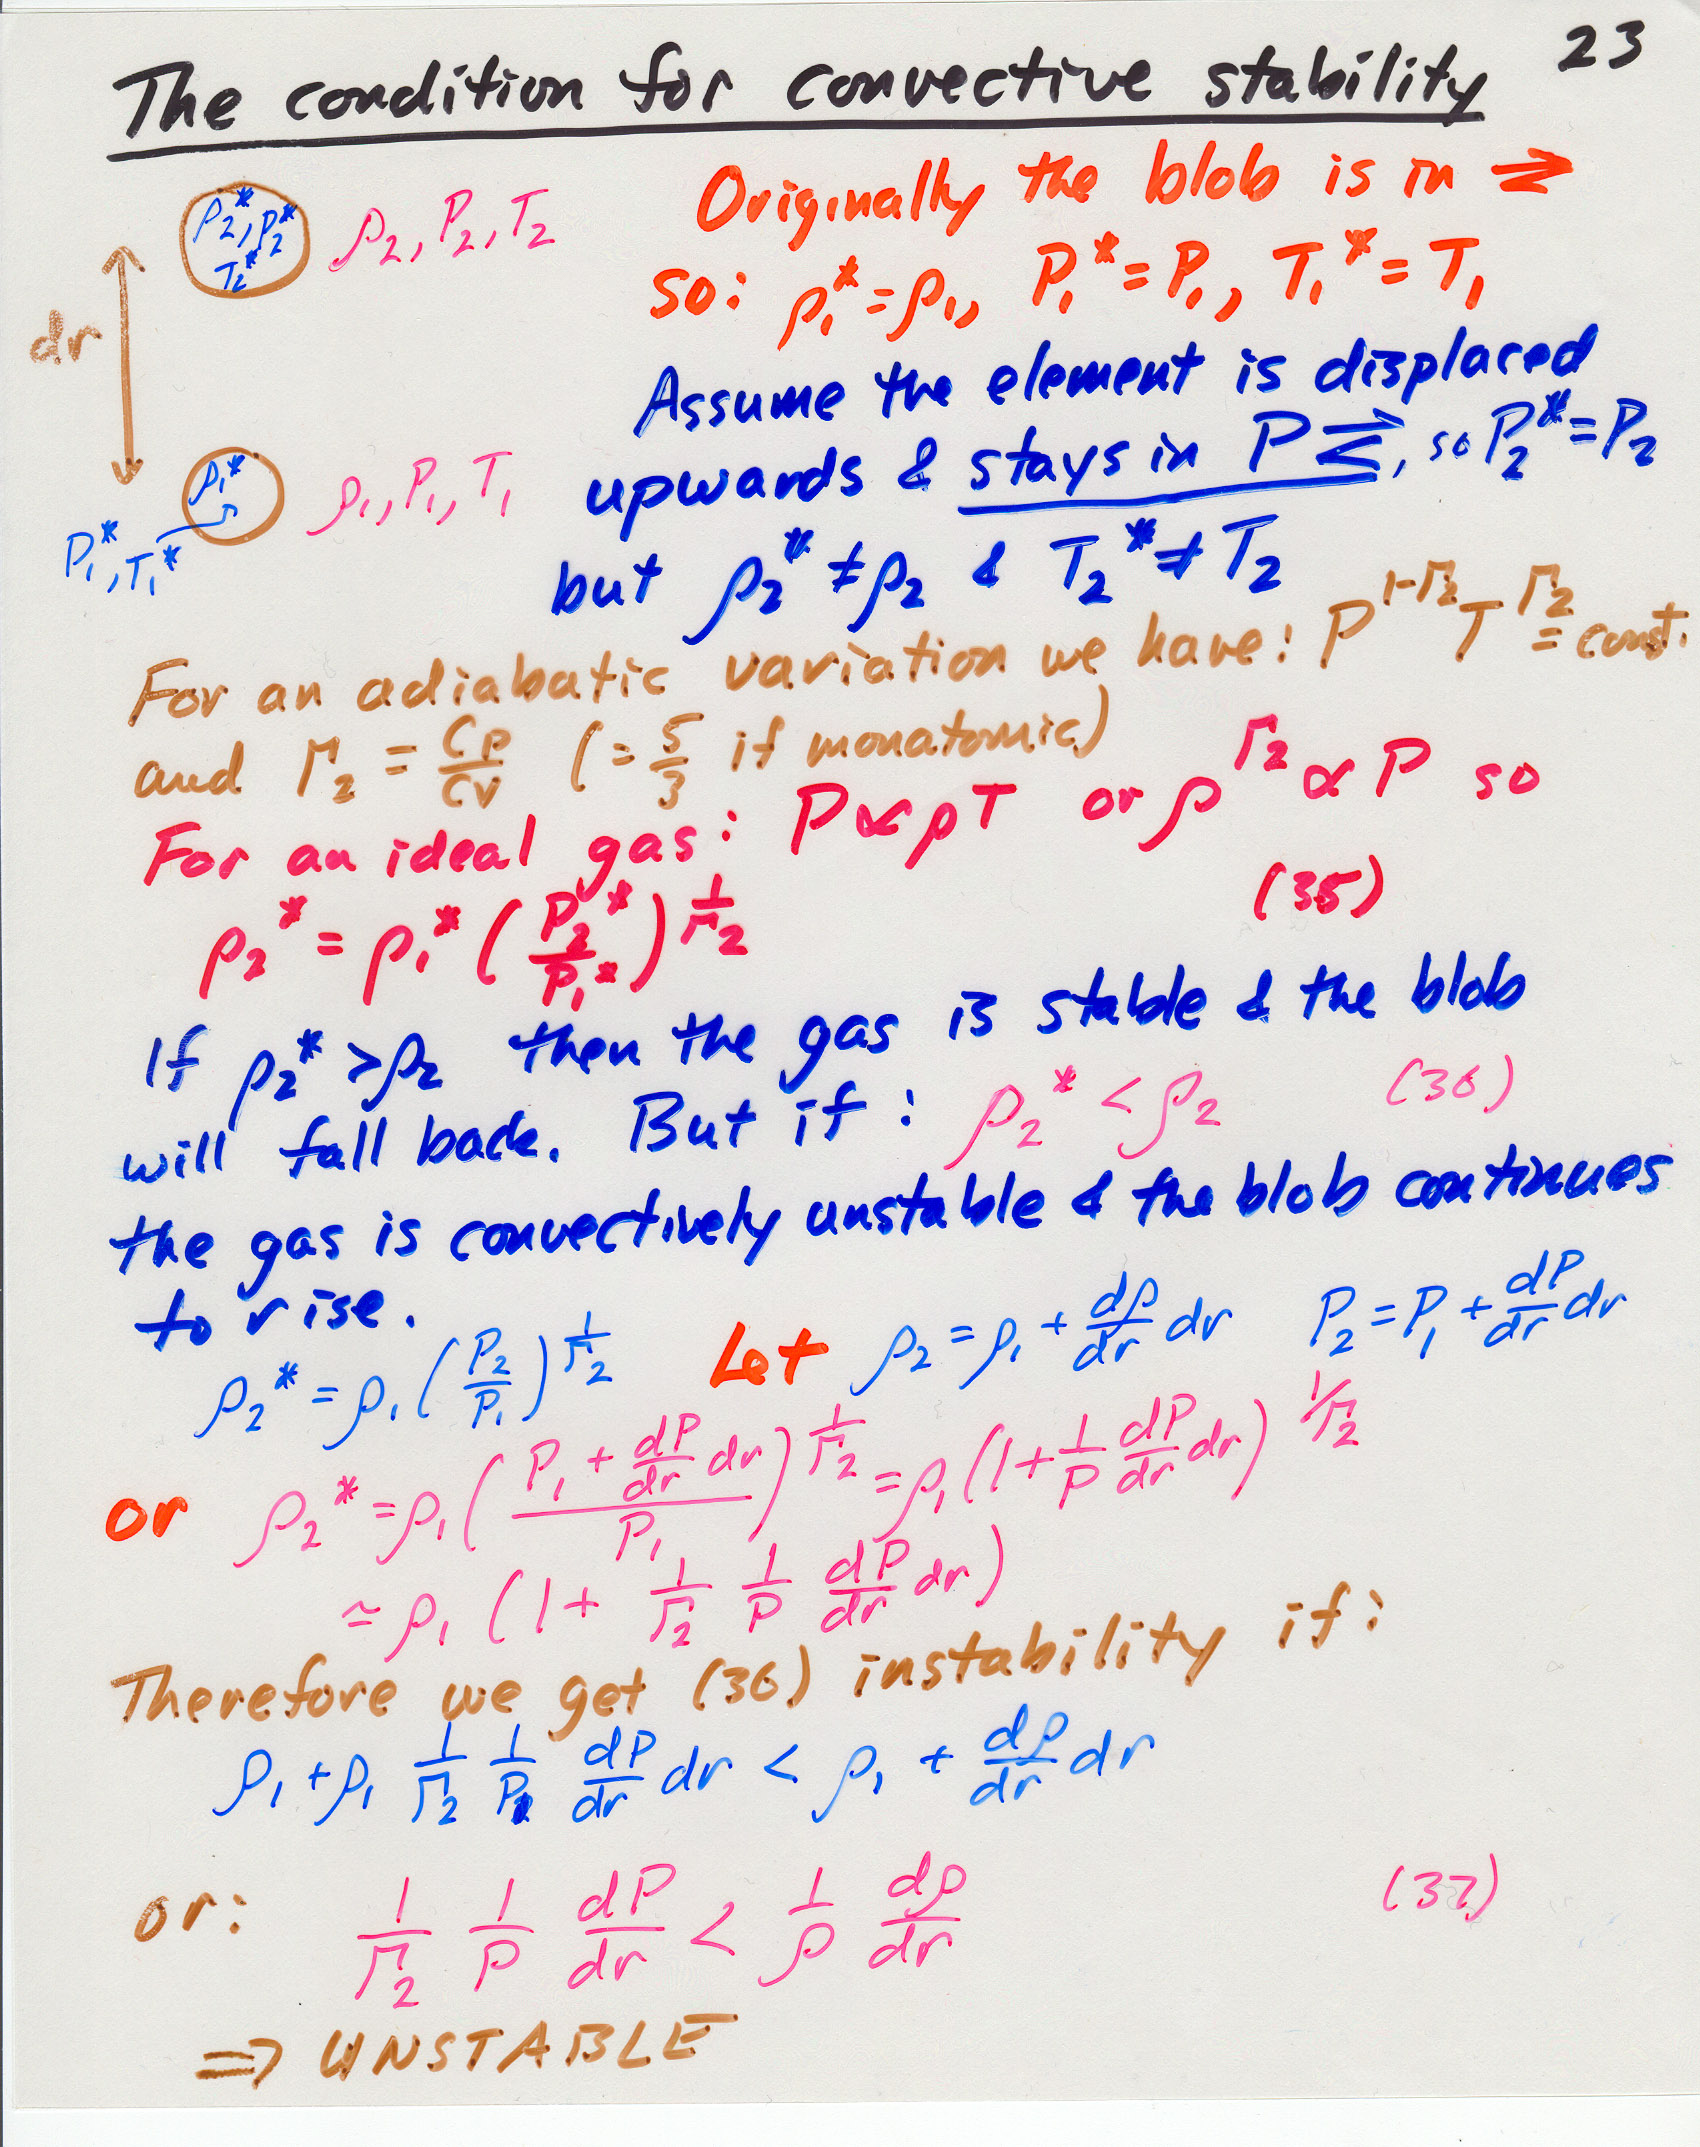 23
The condition for convective stability
ρ₂*, P₂*
T₂*
ρ₂, P₂, T₂
dr
ρ₁*
P₁*, T₁*
ρ₁, P₁, T₁
Originally the blob is in ⇌
so: ρ₁* = ρ₁, P₁* = P₁, T₁* = T₁
Assume the element is displaced
upwards & stays in P ⇌, so P₂* = P₂
but ρ₂* ≠ ρ₂ & T₂* ≠ T₂
For an adiabatic variation we have: P^(1-Γ₂) T^(Γ₂) = const.
and Γ₂ = Cp/Cv (= 5/3 if monatomic)
For an ideal gas: P ∝ ρT or ρ^(Γ₂) ∝ P so
ρ₂* = ρ₁* (P₂*/P₁*)^(1/Γ₂) (35)
If ρ₂* > ρ₂ then the gas is stable & the blob
will fall back. But if: ρ₂* < ρ₂ (36)
the gas is convectively unstable & the blob continues
to rise.
ρ₂* = ρ₁ (P₂/P₁)^(1/Γ₂) Let ρ₂ = ρ₁ + dρ/dr dr P₂ = P₁ + dP/dr dr
or ρ₂* = ρ₁ ((P₁ + dP/dr dr)/P₁)^(1/Γ₂) = ρ₁ (1 + 1/P dP/dr dr)^(1/Γ₂)
≃ ρ₁ (1 + 1/Γ₂ 1/P dP/dr dr)
Therefore we get (36) instability if:
ρ₁ + ρ₁ 1/Γ₂ 1/P₁ dP/dr dr < ρ₁ + dρ/dr dr
or: 1/Γ₂ 1/P dP/dr < 1/ρ dρ/dr (37)
⇒ UNSTABLE